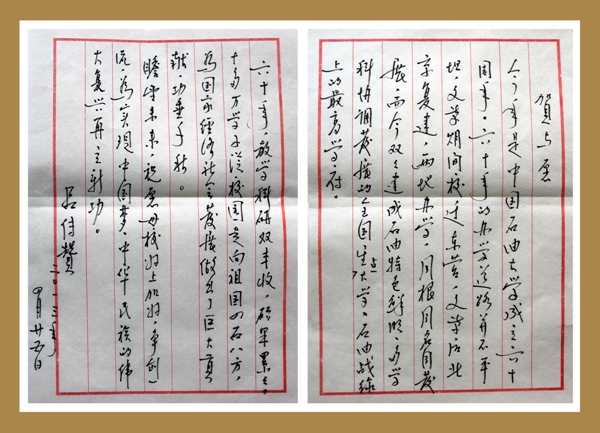 贺与愿
今年是中国石油大学成立六十
周年。六十年的办学道路并不平
坦,文革期间校迁东营,文革后北
京复建,两地办学,同根同名同发
展,而今双双建成石油特色鲜明,多学
科协调发展的全国重点大学,石油战线
上的最高学府。
六十年,教学科研双丰收,硕果累累。
十多万学子从校园走向祖国四面八方,
为国家经济社会发展做出了巨大贡
献,功垂千秋。
瞻望未来,祝愿母校好上加好,争创一
流,为实现中国梦,中华民族的伟
大复兴再立新功。
吕传赞
二〇一三年
四月廿五日